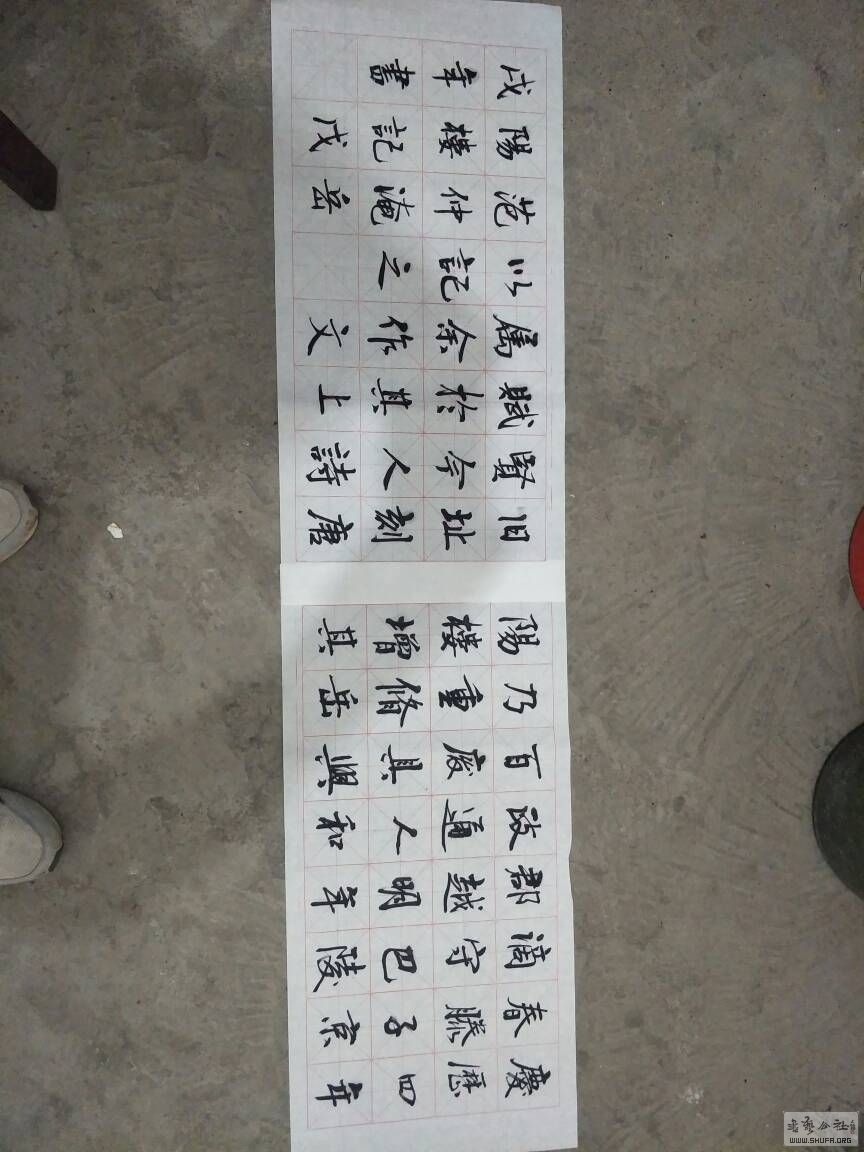 慶歷四年
春滕子京
謫守巴陵
郡越明年
政通人和
百廢具興
乃重脩岳
陽樓增其
旧址刻唐
賢今人詩
賦於其上
属余作文
以記之
范仲淹岳
陽樓記戊
戌年書
書藝公社
WWW.SHUFA.ORG